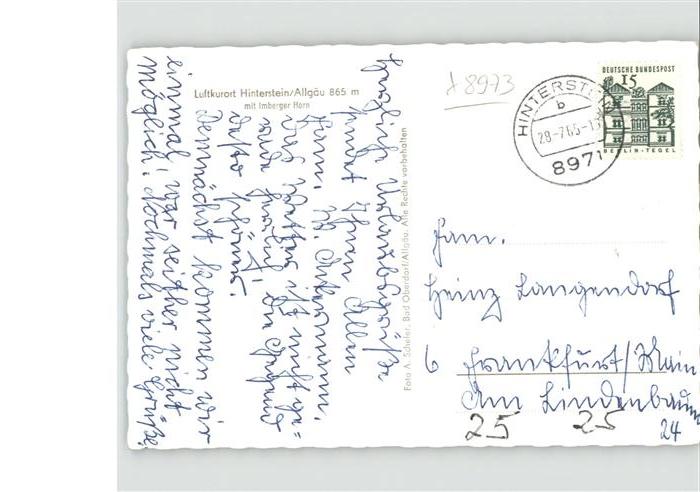 Luftkurort Hinterstein/Allgäu 865 m
mit Imberger Horn
Herzliche Urlaubsgrüße
sendet Ihnen Allen
Fam.
Das Wetter ist nicht ge-
rade herrlich die Gegend
desto schöner!
Demnächst kommen wir
einmal, war seither nicht
möglich! Nochmals viele Grüße
Foto A. Scheler, Bad Oberdorf/Allgäu. Alle Rechte vorbehalten
8973
HINTERSTEIN
b
28-7.65-1
8971
DEUTSCHE BUNDESPOST
15
BERLIN-TEGEL
Fam.
Heinz Langendorf
6 Frankfurt/Main
Am Lindenbaum
24
25 25